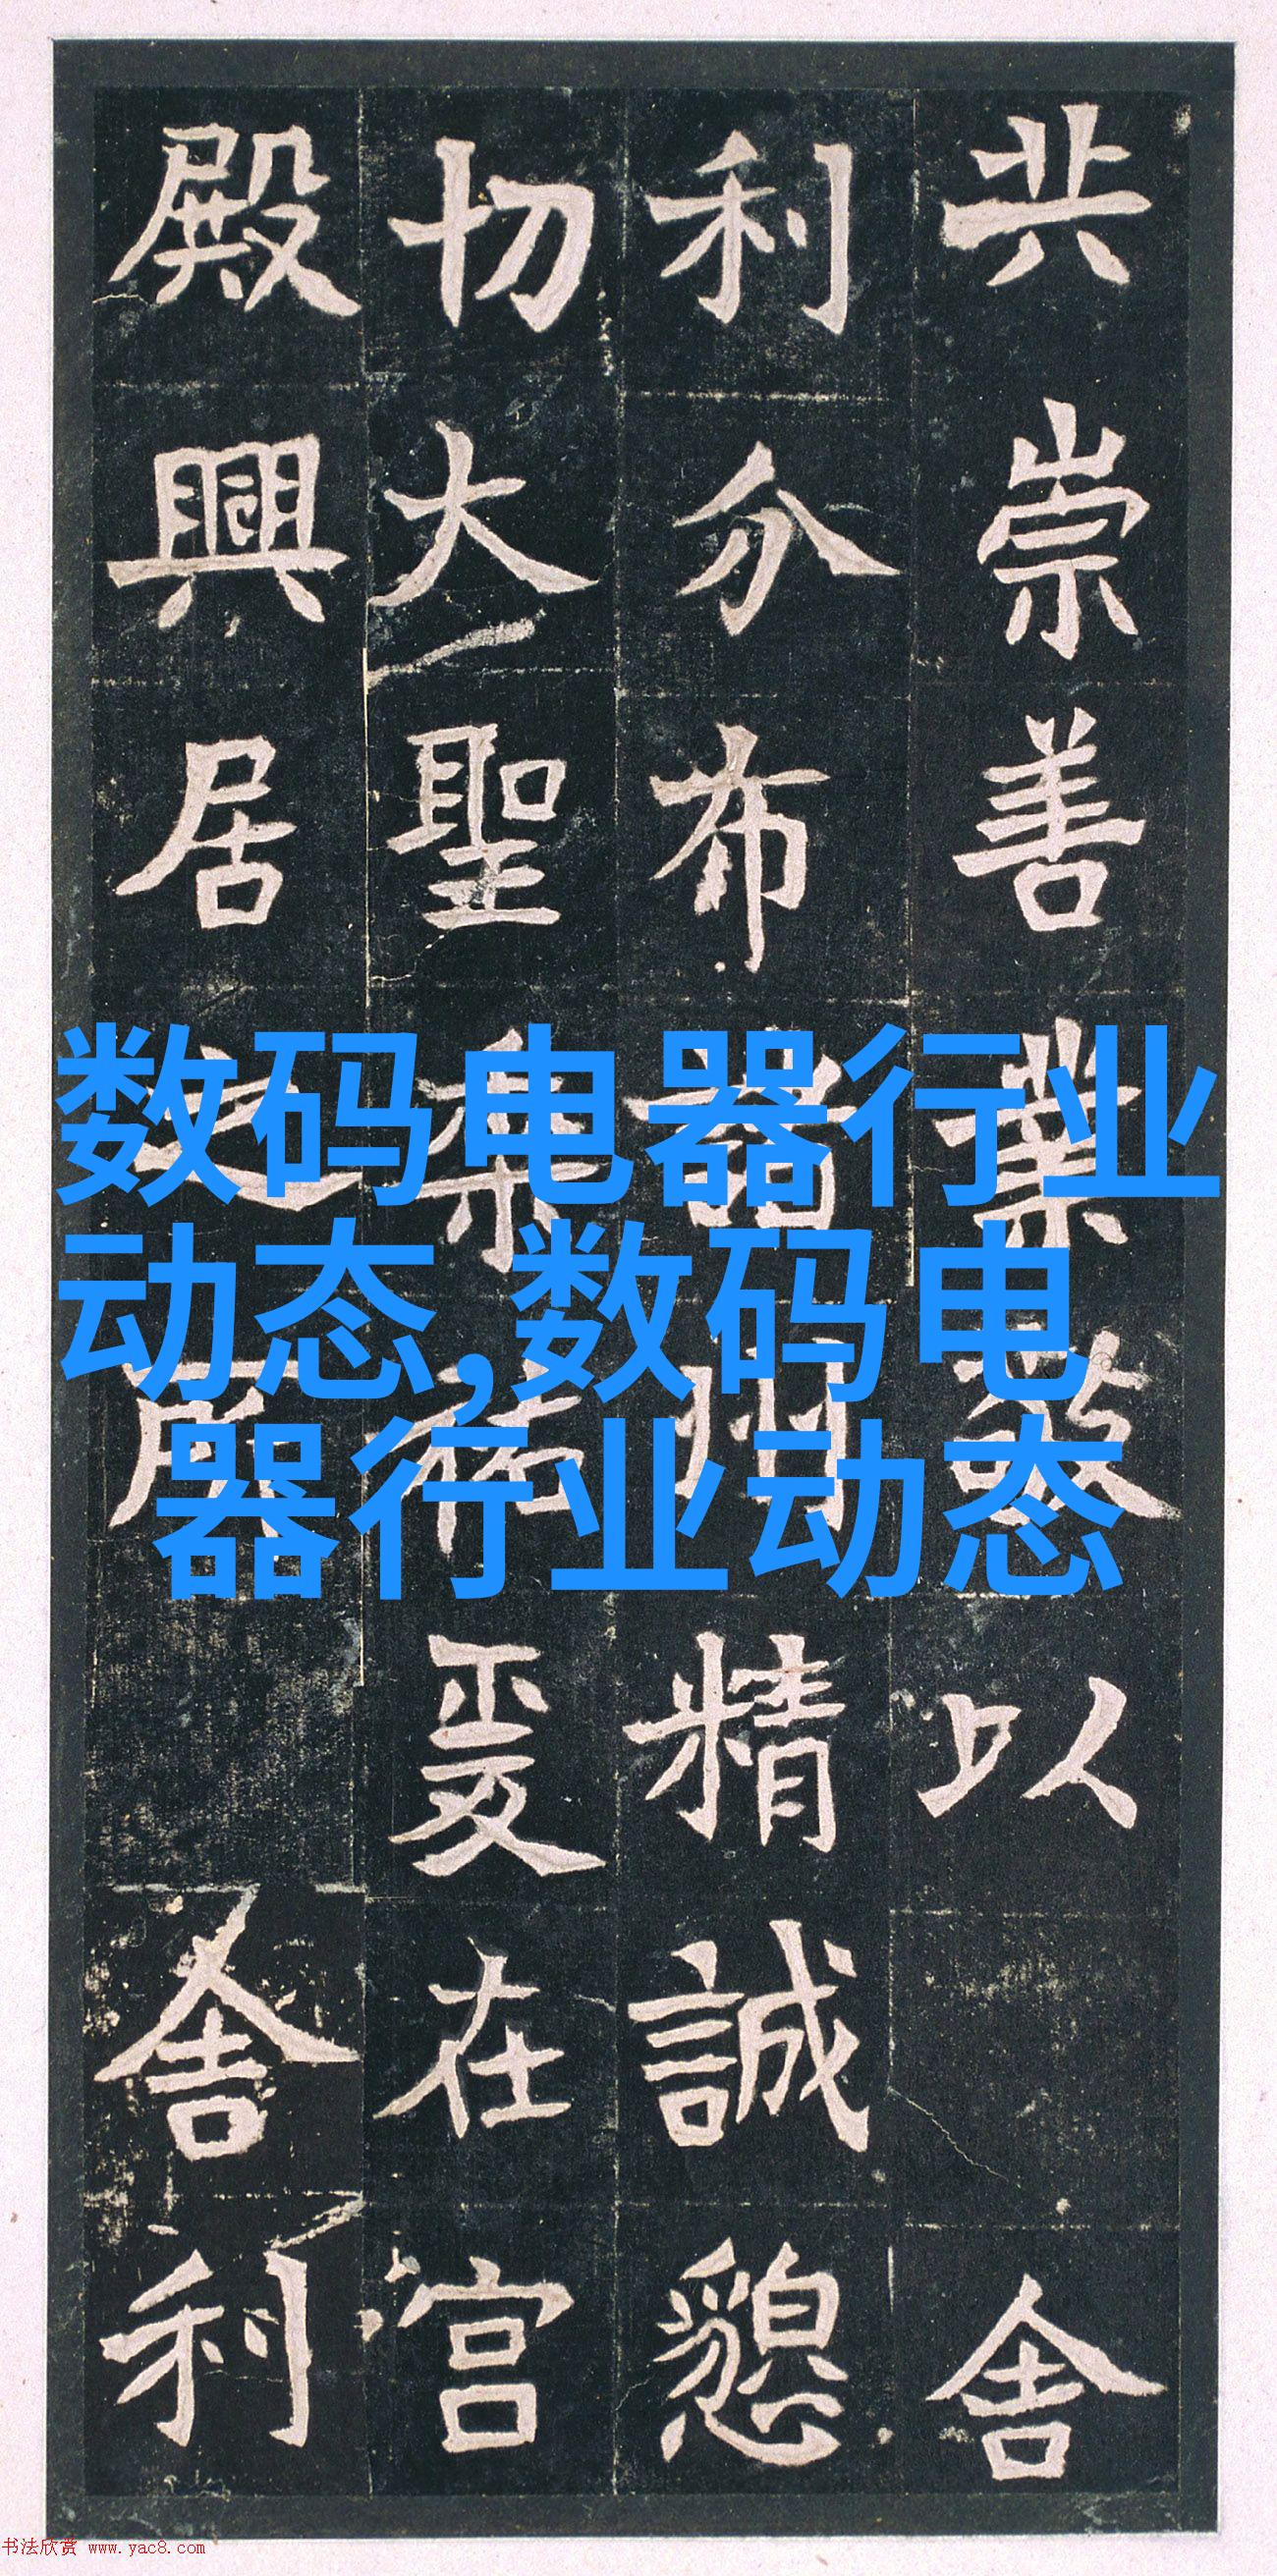 共崇善業敬以舍
利分布諸州精誠懇
切大聖垂祐爰在宫
殿興居之所舍利
数码电器行业
动态,数码电
器行业动态
书法欣赏 www.yac8.com